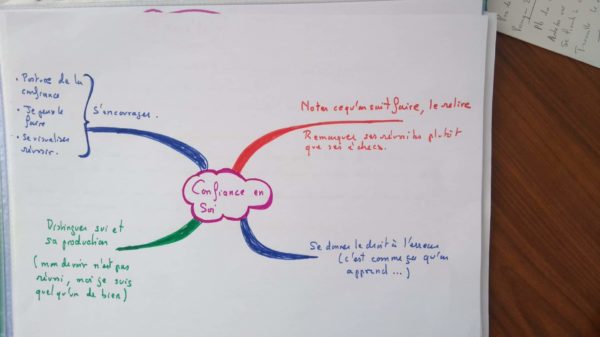 • Posture de la
confiance
• Je peux le
faire
• Se visualiser
réussir.
S'encourager.
Noter ce qu'on sait faire, le relire
Remarquer ses réussites plutôt
que ses échecs.
Confiance en
Soi
Distinguer soi et
sa production
(mon devoir n'est pas
réussi, moi je suis
quelqu'un de bien)
Se donner le droit à l'erreur
(c'est comme ça qu'on
apprend...)